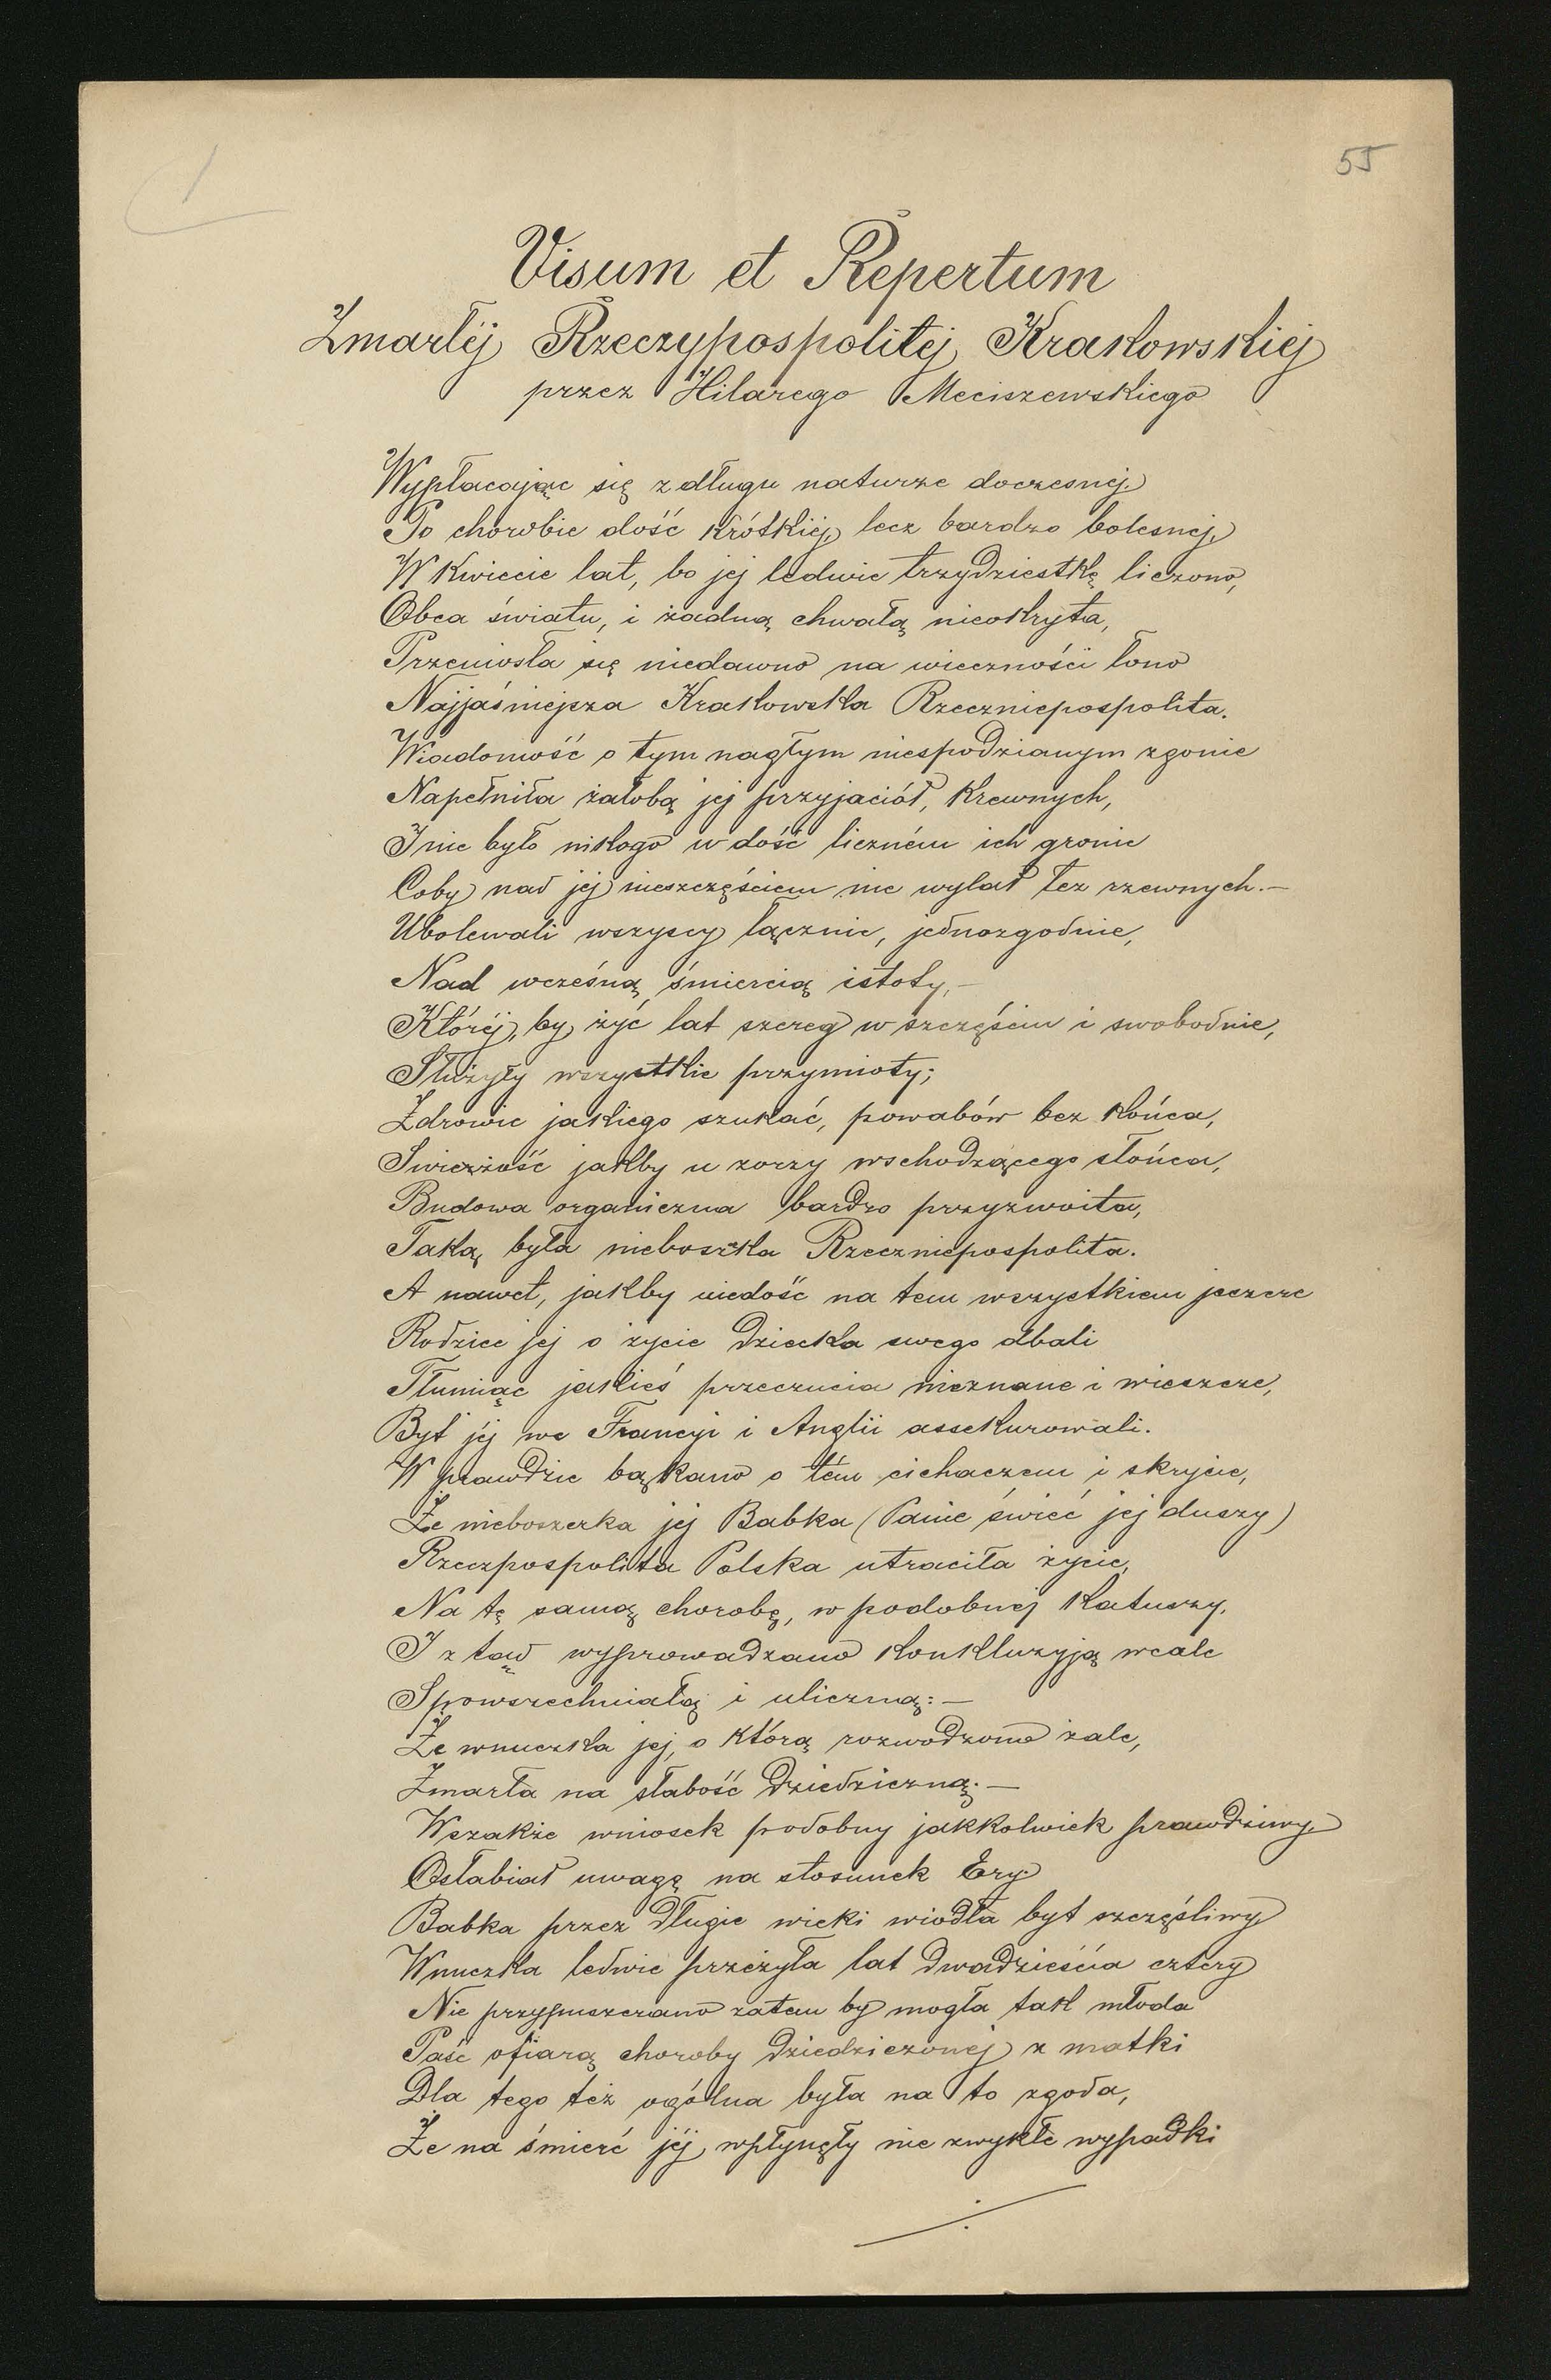 1
55
Visum et Repertum
Zmarłéj Rzeczypospolitéj Krakowskiej
przez Hilarego Meciszewskiego
Wypłacając się z długu naturze doczesnej
Po chorobie dość krótkiéj, lecz bardzo bolesnej,
W kwiecie lat, bo jej ledwie trzydziestkę liczono,
Obca światu, i żadną chwałą nieokryta,
Przeniosła się niedawno na wieczności łono
Najjaśniejsza Krakowska Rzecznicpospolita.
Wiadomość o tym nagłym niespodzianym zgonie
Napełniła żałobą jej przyjaciół, krewnych,
I nie było nikogo w dość liczném ich gronie
Coby nad jej nieszczęściem nie wylał łez rzewnych.—
Ubolewali wszyscy łącznie, jednozgodnie,
Nad wczesną śmiercią istoty,—
Któréj, by żyć lat szereg w szczęściu i swobodnie,
Służyły wszystkie przymioty;
Zdrowie jakiego szukać, powabów bez końca,
Swieżość jakby u zorzy wschodzącego słońca,
Budowa organiczna bardzo przyzwoita,
Taką była nieboszka Rzecznicpospolita.
A nawet, jakby niedość na tem wszystkiem jeszcze
Rodzice jej o życie dziecka swego dbali
Tłumiąc jakieś przeczucia nieznane i wieszcze,
Byt jéj we Francyi i Anglii assekurowali.
W prawdzie bąkano o tém cichaczem i skrycie,
Że nieboszczka jej Babka (Panie świeć jej duszy)
Rzeczpospolita Polska utraciła życie,
Na tę samą chorobę, w podobnej katuszy,
I ztąd wyprowadzano konkluzyją wcale
Spowszechniałą i uliczną:—
Że wnuczka jej, o którą rozwodzono żale,
Zmarła na słabość dziedziczną.—
Wszakże wniosek podobny jakkolwiek prawdziwy
Osłabiał uwagę na stosunek Ery
Babka przez długie wieki wiodła byt szczęśliwy
Wnuczka ledwie przeżyła lat dwadzieścia cztery
Nie przypuszczano zatem by mogła tak młoda
Paść ofiarą choroby dziedziczonej z matki
Dla tego też ogólna była na to zgoda,
Że na śmierć jéj wpłynęły nie zwykłe wypadki